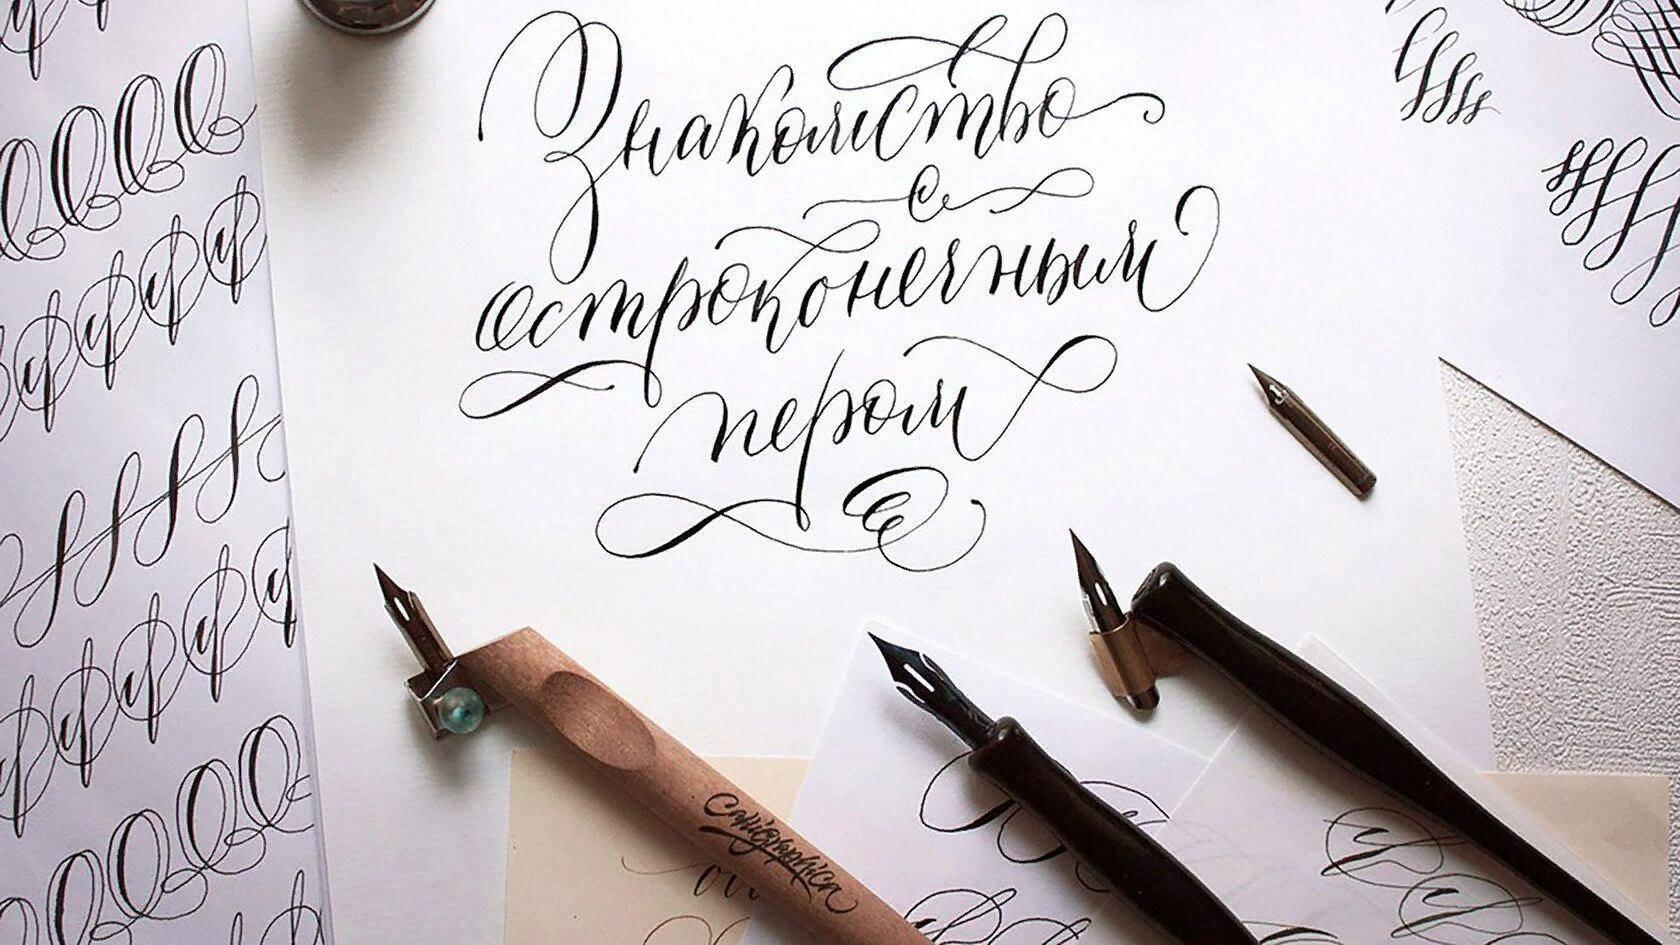 Знакомство
с
остроконечным
пером
Calligraphica